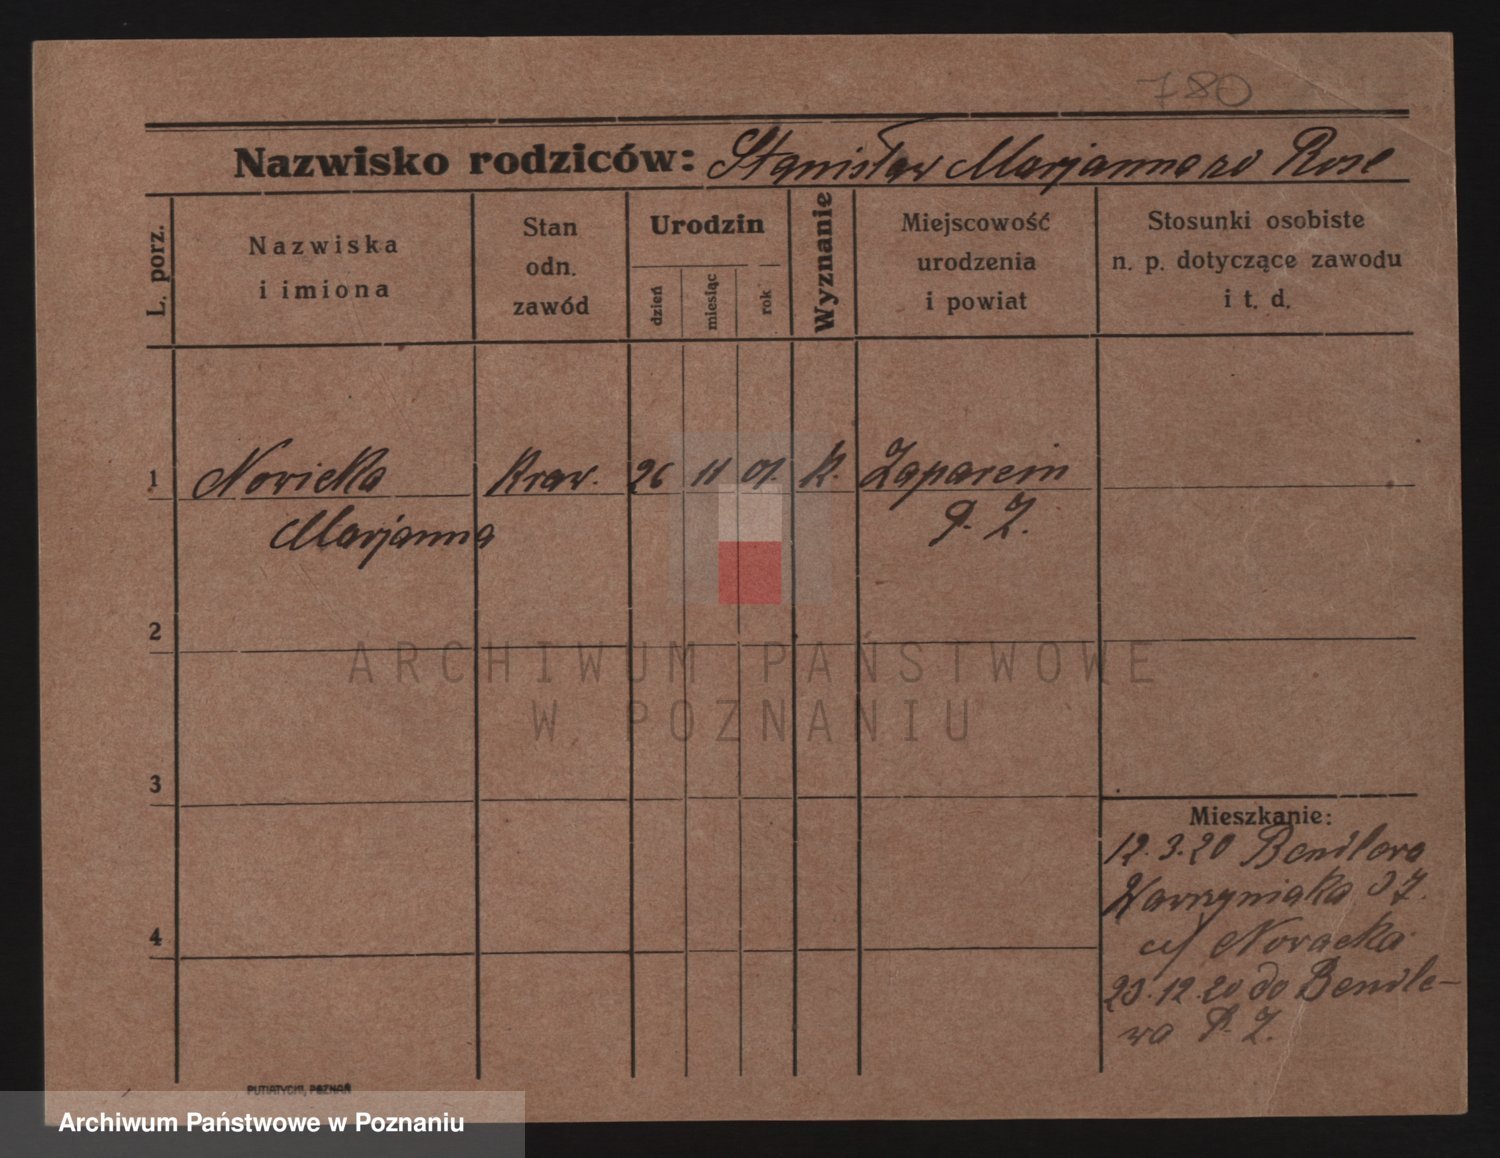 780
Nazwisko rodziców: Stanisław Marjanna zd Rose
L. porz.
Nazwiska i imiona
Stan odn. zawód
Urodzin
dzień
miesiąc
rok
Wyznanie
Miejscowość urodzenia i powiat
Stosunki osobiste n. p. dotyczące zawodu i t. d.
1 Novicka Kraw. 26 11 01. k. Zaparcin
Marjanna P. Z.
2
ARCHIWUM PAŃSTWOWE
W POZNANIU
3
Mieszkanie:
12.3.20 Bendlewo
Wawrzyniaka 37.
Novacka
23.12.20 do Bendle-
wa P. Z.
4
PUTIATYCKI, POZNAŃ
Archiwum Państwowe w Poznaniu